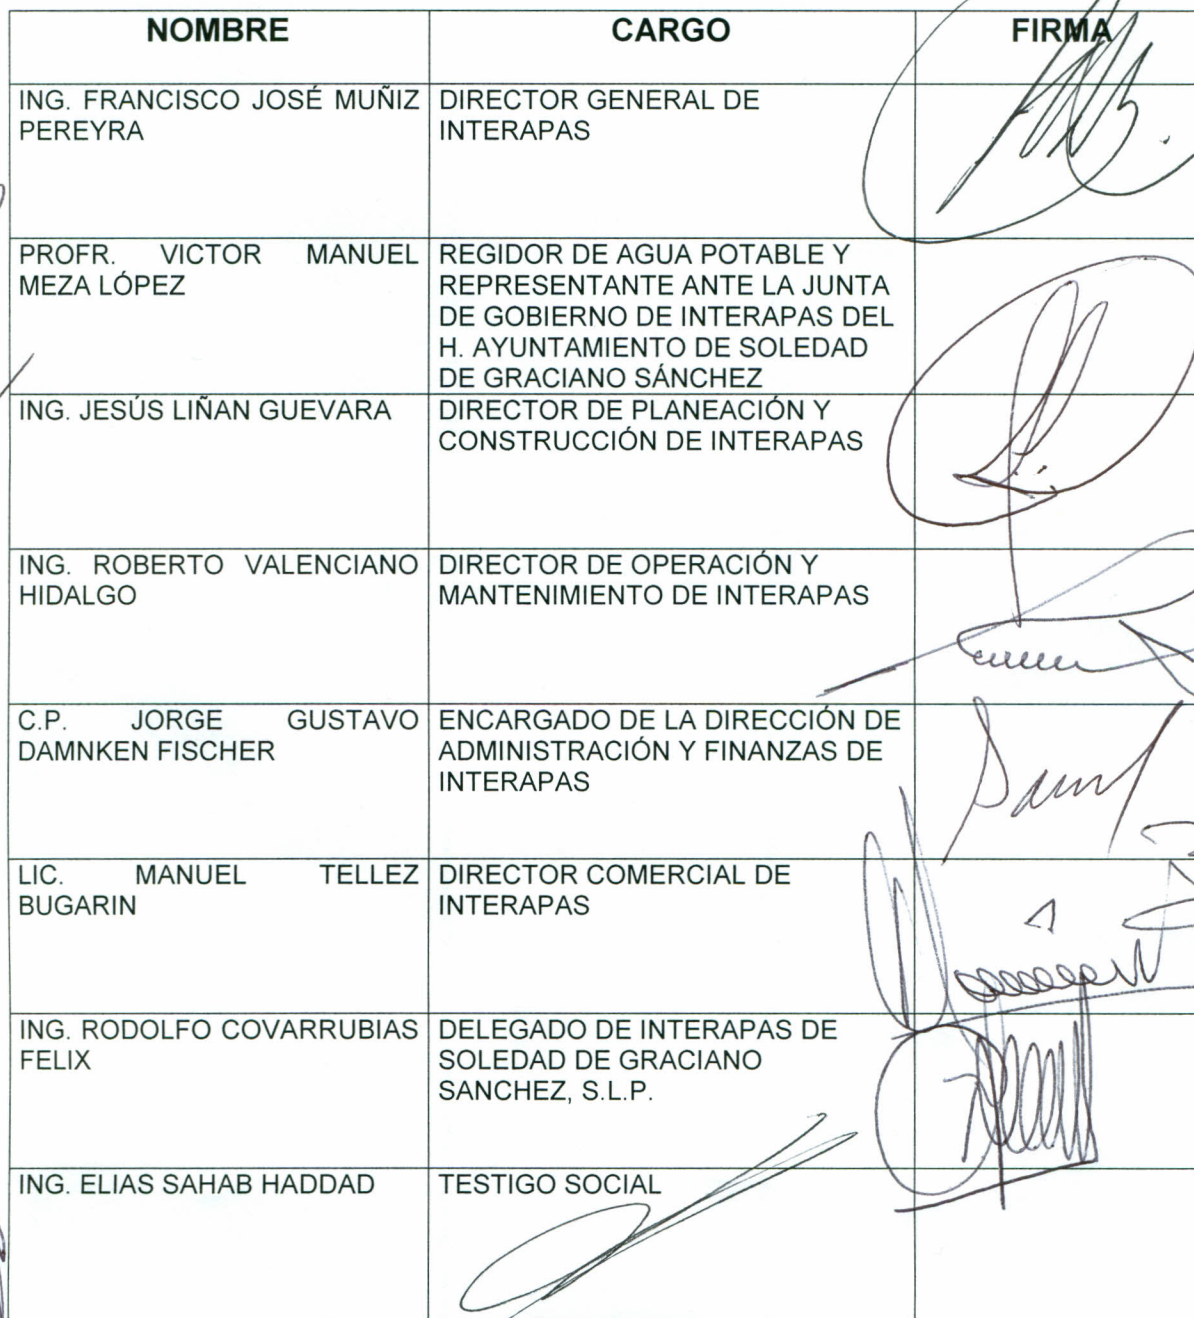 NOMBRE CARGO FIRMA
ING. FRANCISCO JOSÉ MUÑIZ DIRECTOR GENERAL DE
PEREYRA INTERAPAS
PROFR. VICTOR MANUEL REGIDOR DE AGUA POTABLE Y
MEZA LÓPEZ REPRESENTANTE ANTE LA JUNTA
DE GOBIERNO DE INTERAPAS DEL
H. AYUNTAMIENTO DE SOLEDAD
DE GRACIANO SÁNCHEZ
ING. JESÚS LIÑAN GUEVARA DIRECTOR DE PLANEACIÓN Y
CONSTRUCCIÓN DE INTERAPAS
ING. ROBERTO VALENCIANO DIRECTOR DE OPERACIÓN Y
HIDALGO MANTENIMIENTO DE INTERAPAS
C.P. JORGE GUSTAVO ENCARGADO DE LA DIRECCIÓN DE
DAMNKEN FISCHER ADMINISTRACIÓN Y FINANZAS DE
INTERAPAS
LIC. MANUEL TELLEZ DIRECTOR COMERCIAL DE
BUGARIN INTERAPAS
ING. RODOLFO COVARRUBIAS DELEGADO DE INTERAPAS DE
FELIX SOLEDAD DE GRACIANO
SANCHEZ, S.L.P.
ING. ELIAS SAHAB HADDAD TESTIGO SOCIAL